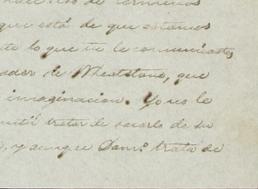 que está de que estamos
lo que tu le comunicastes,
de Wheatstone, que
imaginacion. Yo no lo
tratar de sacarlo de su
, y aunque Dom.º trata de